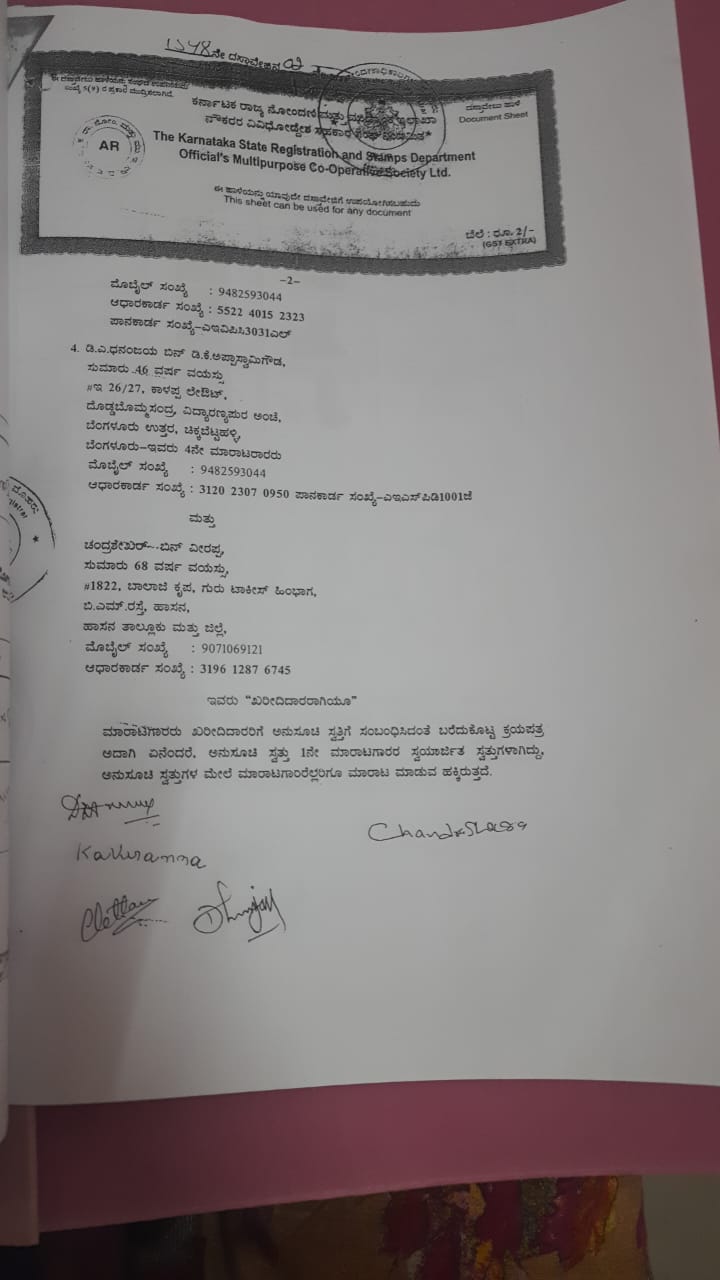 1548ನೇ ದಸ್ತಾವೇಜಿನ 02
ಈ ದಸ್ತಾವೇಜು ಹಾಳೆಯನ್ನು
ದಸ್ತಾವೇಜು ಹಾಳೆ
Document Sheet
ಕರ್ನಾಟಕ ರಾಜ್ಯ ನೋಂದಣಿ ಮತ್ತು ಮುದ್ರಾಂಕ ಇಲಾಖಾ
ನೌಕರರ ವಿವಿಧೋದ್ದೇಶ ಸಹಕಾರ ಸಂಘ ನಿಯಮಿತ
AR
The Karnataka State Registration and Stamps Department
Official's Multipurpose Co-Operative Society Ltd.
ಈ ಹಾಳೆಯನ್ನು ಯಾವುದೇ ದಸ್ತಾವೇಜಿಗೆ ಉಪಯೋಗಿಸಬಹುದು
This sheet can be used for any document
ಬೆಲೆ : ರೂ. 2/-
(GST EXTRA)
-2-
ಮೊಬೈಲ್ ಸಂಖ್ಯೆ : 9482593044
ಆಧಾರಕಾರ್ಡ ಸಂಖ್ಯೆ : 5522 4015 2323
ಪಾನಕಾರ್ಡ ಸಂಖ್ಯೆ-ಎಇವಿಪಿಸಿ3031ಎಲ್
4. ಡಿ.ಎ.ಧನಂಜಯ ಬಿನ್ ಡಿ.ಕೆ.ಅಪ್ಪಾಸ್ವಾಮಿಗೌಡ,
ಸುಮಾರು 46 ವರ್ಷ ವಯಸ್ಸು
#ಇ 26/27, ಕಾಳಪ್ಪ ಲೇಔಟ್,
ದೊಡ್ಡಬೊಮ್ಮಸಂದ್ರ, ವಿದ್ಯಾರಣ್ಯಪುರ ಅಂಚೆ,
ಬೆಂಗಳೂರು ಉತ್ತರ, ಚಿಕ್ಕಬೆಟ್ಟಹಳ್ಳಿ,
ಬೆಂಗಳೂರು-ಇವರು 4ನೇ ಮಾರಾಟರಾರರು
ಮೊಬೈಲ್ ಸಂಖ್ಯೆ : 9482593044
ಆಧಾರಕಾರ್ಡ ಸಂಖ್ಯೆ : 3120 2307 0950 ಪಾನಕಾರ್ಡ ಸಂಖ್ಯೆ-ಎಇಎಸ್‌ಪಿಡಿ1001ಜೆ
ಮತ್ತು
ಚಂದ್ರಶೇಖರ್ ಬಿನ್ ವೀರಪ್ಪ,
ಸುಮಾರು 68 ವರ್ಷ ವಯಸ್ಸು,
#1822, ಬಾಲಾಜಿ ಕೃಪ, ಗುರು ಟಾಕೀಸ್ ಹಿಂಭಾಗ,
ಬಿ.ಎಮ್.ರಸ್ತೆ, ಹಾಸನ,
ಹಾಸನ ತಾಲ್ಲೂಕು ಮತ್ತು ಜಿಲ್ಲೆ,
ಮೊಬೈಲ್ ಸಂಖ್ಯೆ : 9071069121
ಆಧಾರಕಾರ್ಡ ಸಂಖ್ಯೆ : 3196 1287 6745
ಇವರು "ಖರೀದಿದಾರರಾಗಿಯೂ"
ಮಾರಾಟಗಾರರು ಖರೀದಿದಾರರಿಗೆ ಅನುಸೂಚಿ ಸ್ವತ್ತಿಗೆ ಸಂಬಂಧಿಸಿದಂತೆ ಬರೆದುಕೊಟ್ಟ ಕ್ರಯಪತ್ರ
ಅದಾಗಿ ಏನೆಂದರೆ, ಅನುಸೂಚಿ ಸ್ವತ್ತು 1ನೇ ಮಾರಾಟಗಾರರ ಸ್ವಯಾರ್ಜಿತ ಸ್ವತ್ತುಗಳಾಗಿದ್ದು,
ಅನುಸೂಚಿ ಸ್ವತ್ತುಗಳ ಮೇಲೆ ಮಾರಾಟಗಾಂರೆಲ್ಲರಿಗೂ ಮಾರಾಟ ಮಾಡುವ ಹಕ್ಕಿರುತ್ತದೆ.